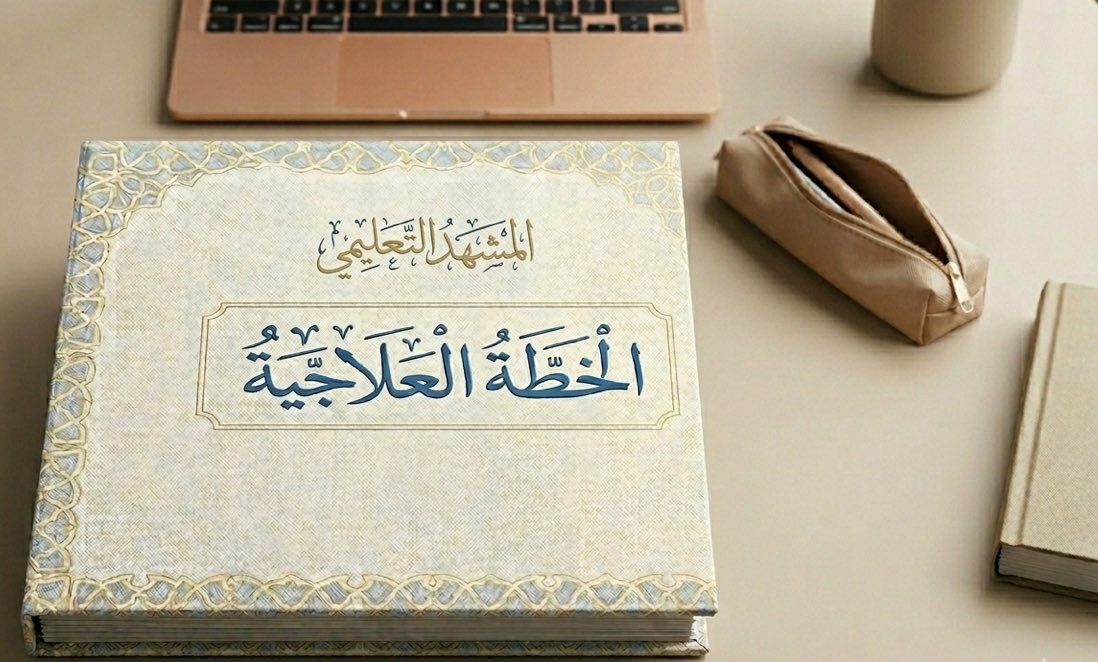 المَشْهَدُ التَّعَلِيمِي
الْخَطَّةُ الْعَلَاجِيَّةُ